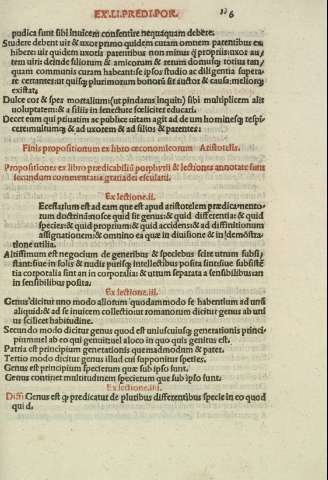 EX. LI. PREDI. POR.
pudica sunt sibi inuicem consentire nequaquam debere:
Studere debent uir & uxor primo quidem curam omnem parentibus ex
hibere: uir quidem uxoris parentibus non minus q̃ propriis: uxor au/
tem uiri: deinde filiorum & amicorum & rerum domusq; totius tan/
quam communis curam habeant: se ipso studio ac diligentia supera/
re certantes: ut quisq; plurimorum bonorũ sit auctor & causa: meliorq;
existat.
Dulce cor & spes mortalium (ut pindarus inquit) sibi multiplicem alit
uoluptatem: & a filiis in senectute fœliciter educari.
Decet eum qui priuatim ac publice uitam agit ad deum homines q; respi/
cere multumq; & ad uxorem & ad filios & parentes:
Finis propositionum ex libro œconomicorum Aristotelis.
Propositiones ex libro prædicabiliũ porphyrii & lectiones annotate sunt
secundum commentaria gratiadei esculani.
Ex lectione. ii.
Ecessarium est ad eam que est apud aristotelem prædicamento-
rum doctrinã nosce quid sit genus: & quid differentia: & quid
species: & quid proprium: & quid accidens: & ad diffinitionum
assignationem: & omnino ea quæ in diuisione & in demostra-
tione utilia.
Altissimum est negocium de generibus & speciebus siue utrum subsi/
stant: siue in solis & nudis purisq; intellectibus posita sint: siue subsistē
tia corporalia sint an in corporalia: & utrum separata a sensibilibus: an
in sensibilibus posita.
Ex lectione. iii.
Genus dicitur uno modo aliorum quodammodo se habentium ad unũ
aliquid: & ad se inuicem collectio: ut romanorum dicitur genus ab uni
us scilicet habitudine.
Secundo modo dicitur genus quod est uniuscuiusq; generationis princi/
pium uel ab eo qui genuit: uel a loco in quo quis genitus est.
Patria est principium generationis quemadmodum & pater.
Tertio modo dicitur genus illud cui supponitur species.
Genus est principium specierum quæ sub ipso sunt.
Genus continet multitudinem specierum quæ sub ipso sunt.
Ex lectione. iiii.
Diffi Genus est q; predicatur de pluribus differentibus specie in eo quod
quid.